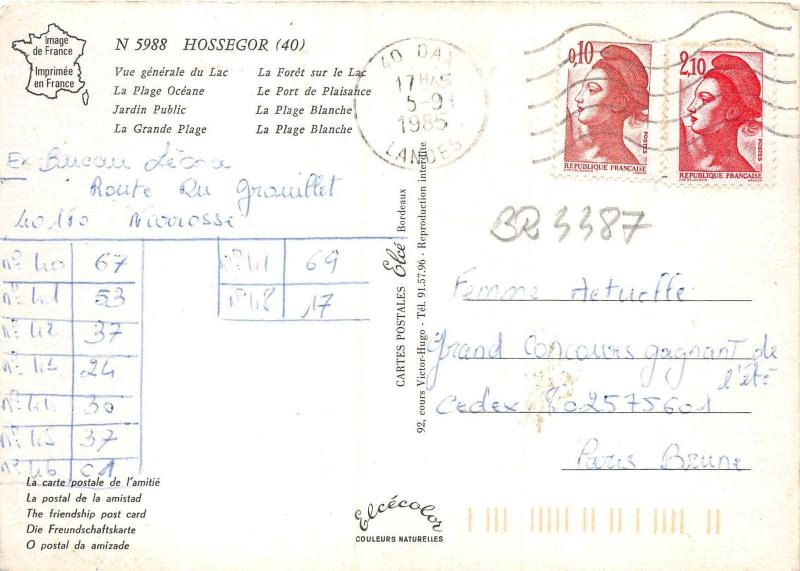 Image
de France
Imprimée
en France
N 5988 HOSSEGOR (40)
Vue générale du Lac La Forêt sur le Lac
La Plage Océane Le Port de Plaisance
Jardin Public La Plage Blanche
La Grande Plage La Plage Blanche
40 DAX
17H45
5-9
1985
LANDES
0,10
POSTES
REPUBLIQUE FRANÇAISE
2,10
POSTES
REPUBLIQUE FRANÇAISE
Route du Grouillet
40180 Narrosse
n° 40 67
n° 41 53
n° 42 37
24
30
n° 45 37
n° 46 01
n° 41 69
n° 48 17
CARTES POSTALES Elcé Bordeaux
92, cours Victor-Hugo - Tél. 91.57.96 - Reproduction interdite
BR 3387
Femme Actuelle
Grand Concours gagnant de
l'été
Cedex 802575601
Paris Brune
La carte postale de l'amitié
La postal de la amistad
The friendship post card
Die Freundschaftskarte
O postal da amizade
Elcécolor
COULEURS NATURELLES